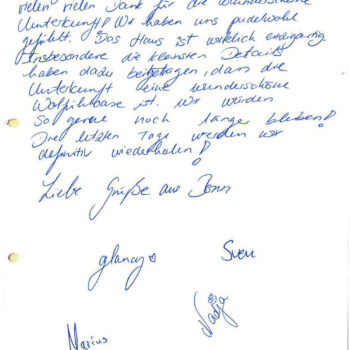 vielen vielen Dank für die wunderschöne
Unterkunft! Wir haben uns pudelwohl
gefühlt. Das Haus ist wirklich einzigartig.
Insbesondere die kleinsten Details
haben dazu beigetragen, dass die
Unterkunft eine wunderschöne
Wolfühloase ist. Wir würden
so gerne noch länger bleiben!
Die letzten Tage werden wir
definitiv wiederholen!
Liebe Grüße aus Bonn
Sven
Nadja
Marius